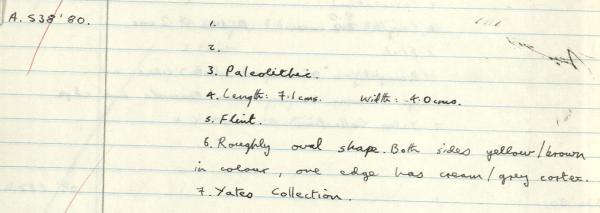 A. 538'80.
1.
2.
3. Paleolithic.
4. Length: 7.1cms. Width: 4.0cms.
5. Flint.
6. Roughly oval shape. Both sides yellow/brown
in colour, one edge has cream/grey cortex.
7. Yates Collection.